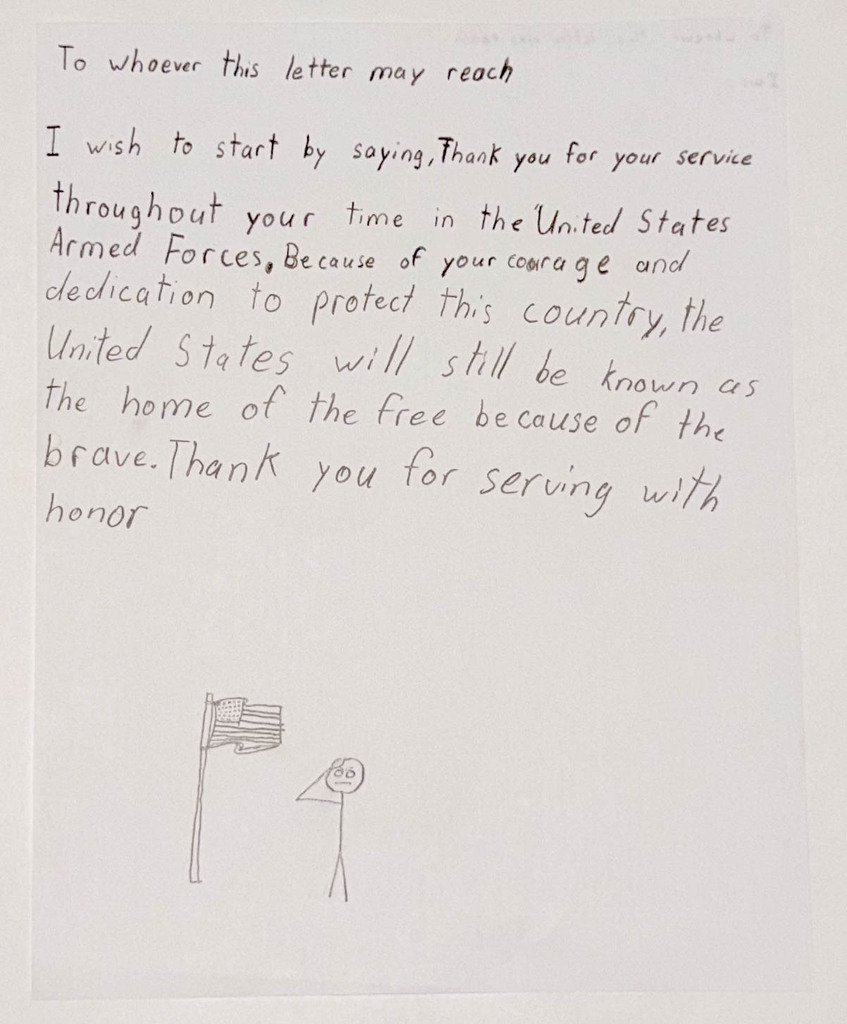 To whoever this letter may reach
I wish to start by saying, Thank you for your service
throughout your time in the United States
Armed Forces. Because of your courage and
dedication to protect this country, the
United States will still be known as
the home of the free because of the
brave. Thank you for serving with
honor